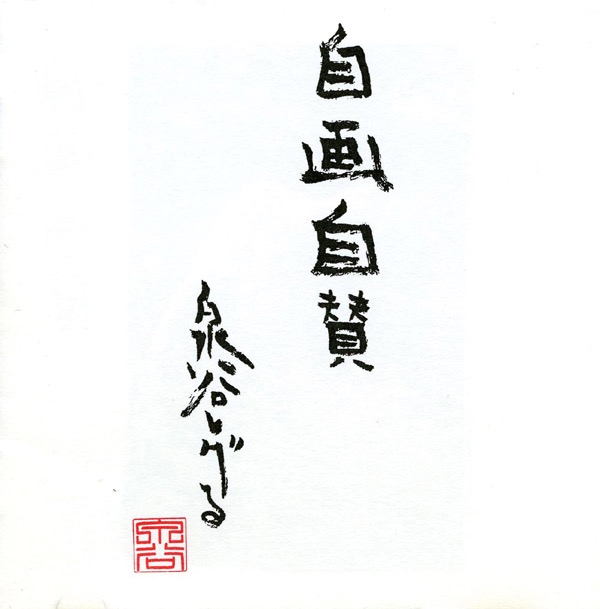 自画自賛
泉谷しげる